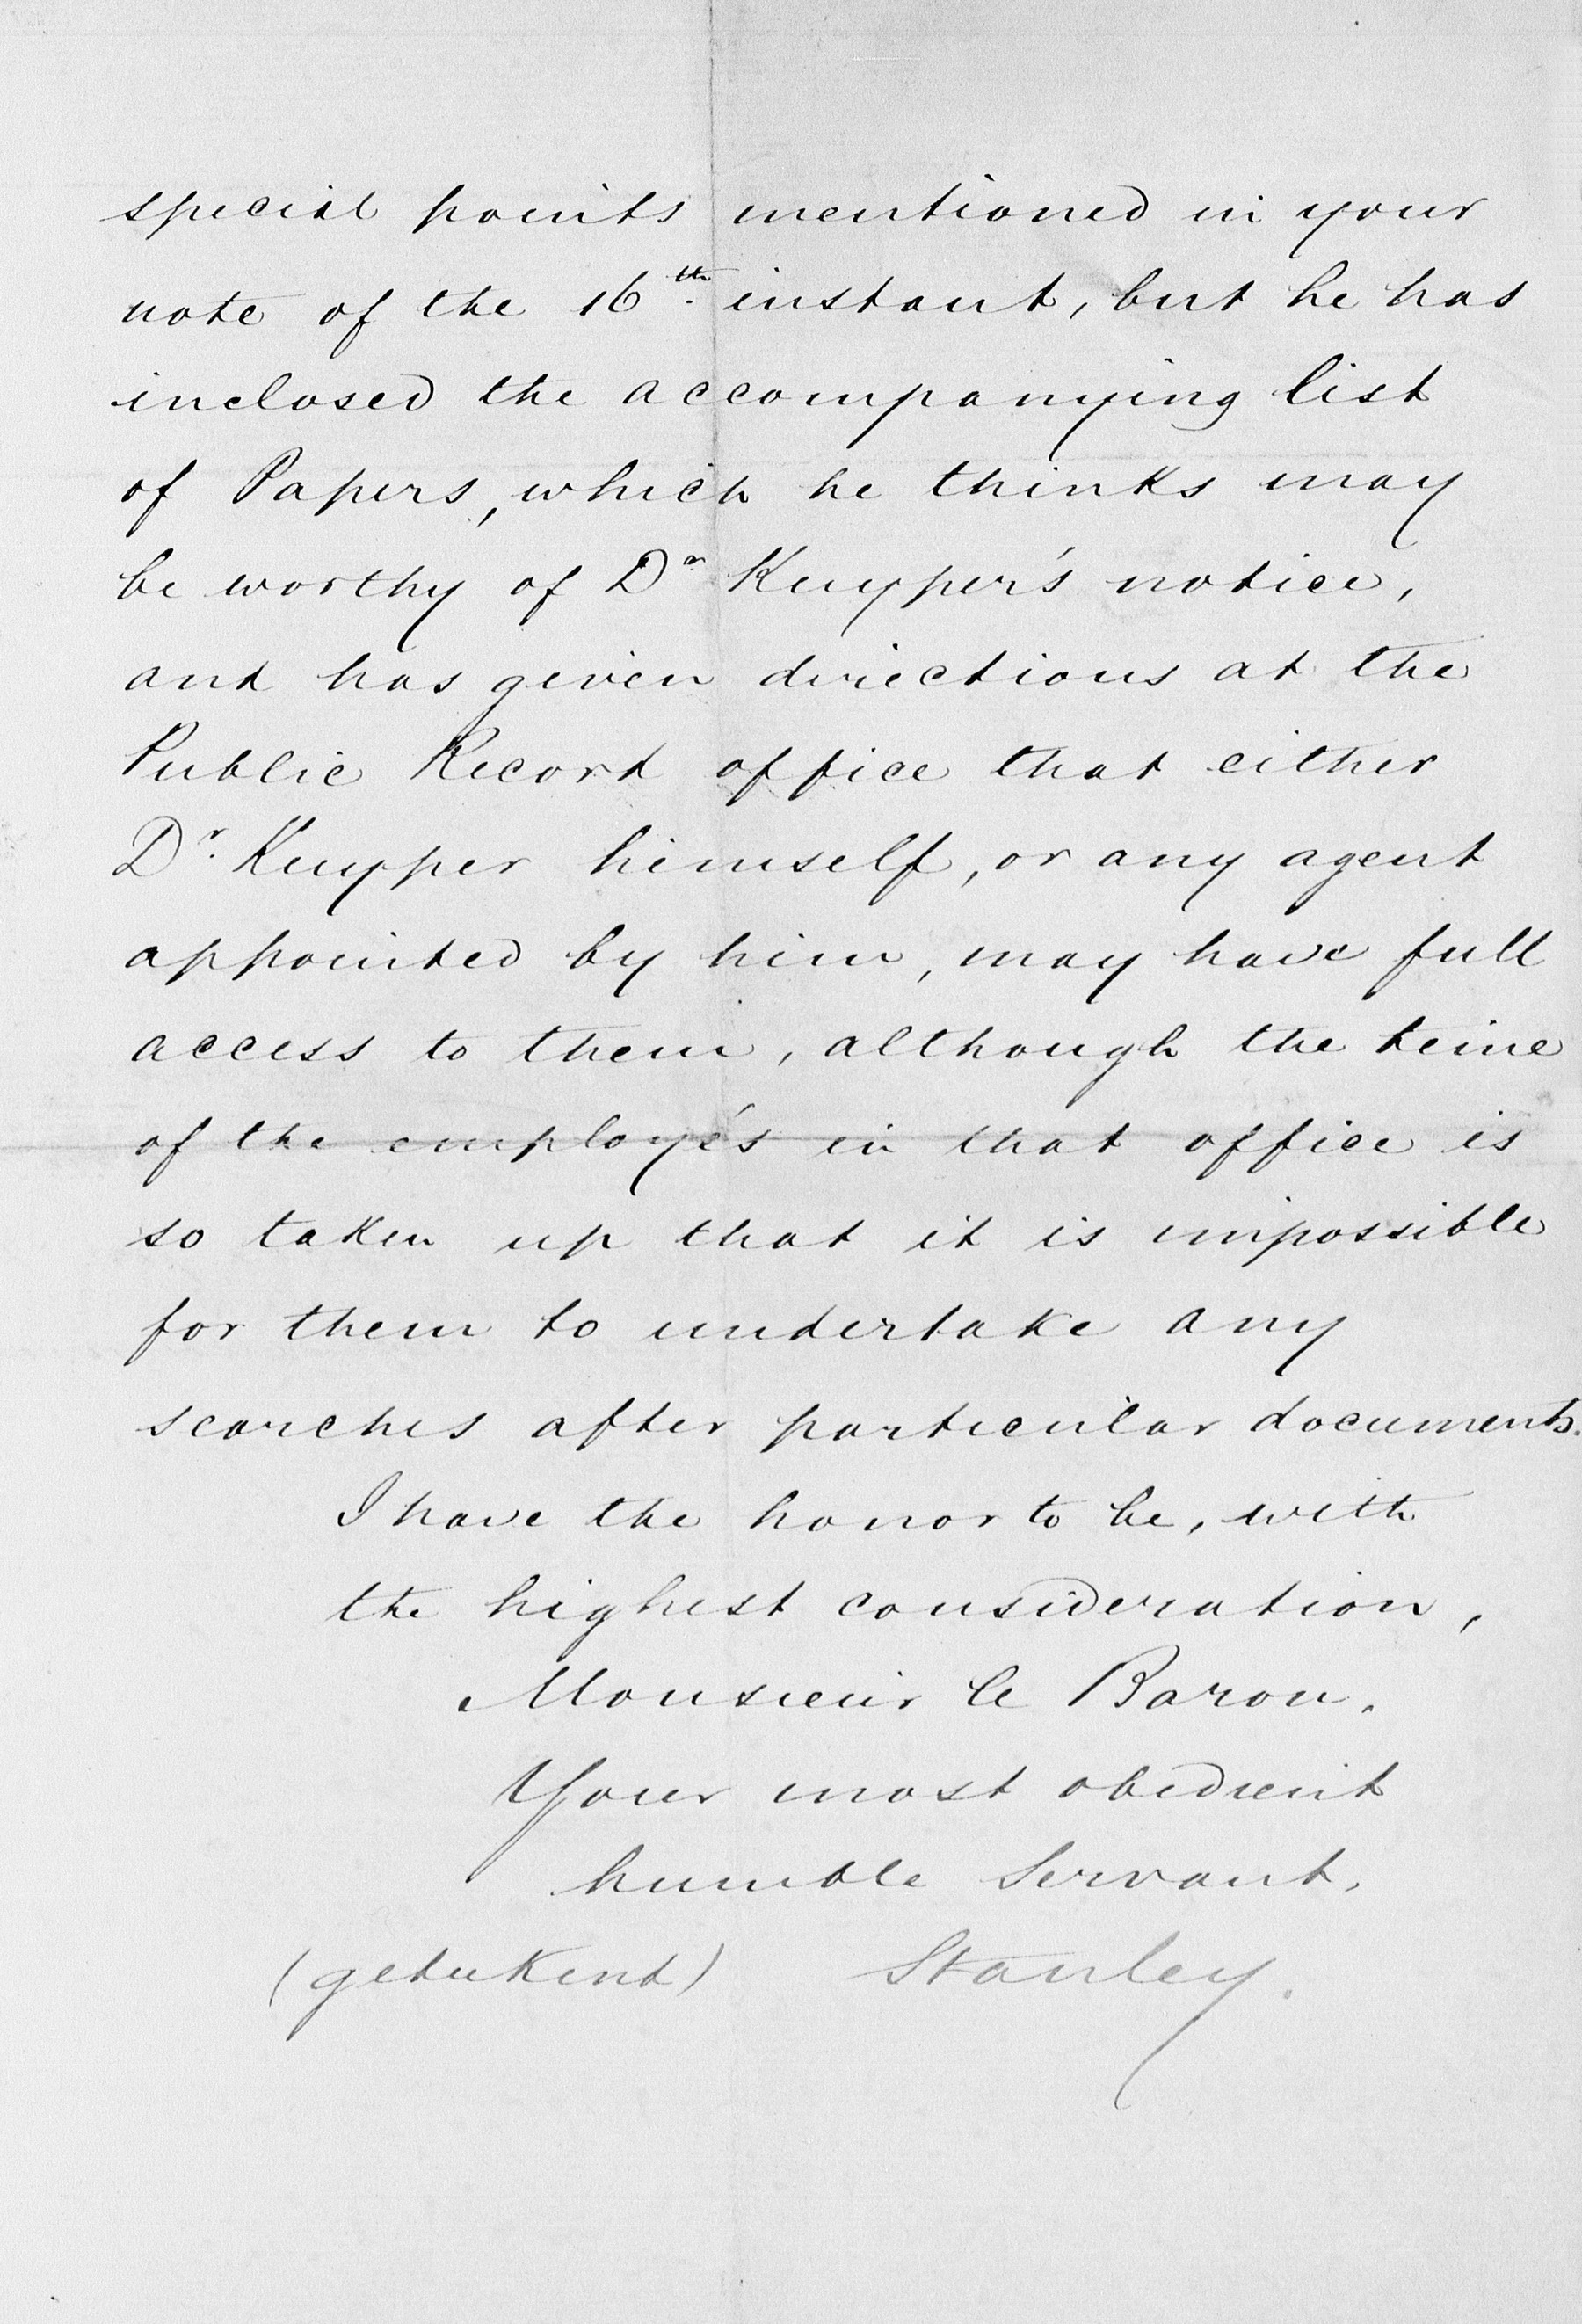 special points mentioned in your
note of the 16th. instant, but he has
inclosed the accompanying list
of Papers, which he thinks may
be worthy of Dr Kuyper's notice,
and has given directions at the
Public Record office that either
Dr. Kuyper himself, or any agent
appointed by him, may have full
access to them, although the time
of the employés in that office is
so taken up that it is impossible
for them to undertake any
searches after particular documents.
I have the honor to be, with
the highest consideration,
Monsieur le Baron,
Your most obedient
humble Servant,
(getekend) Stanley.